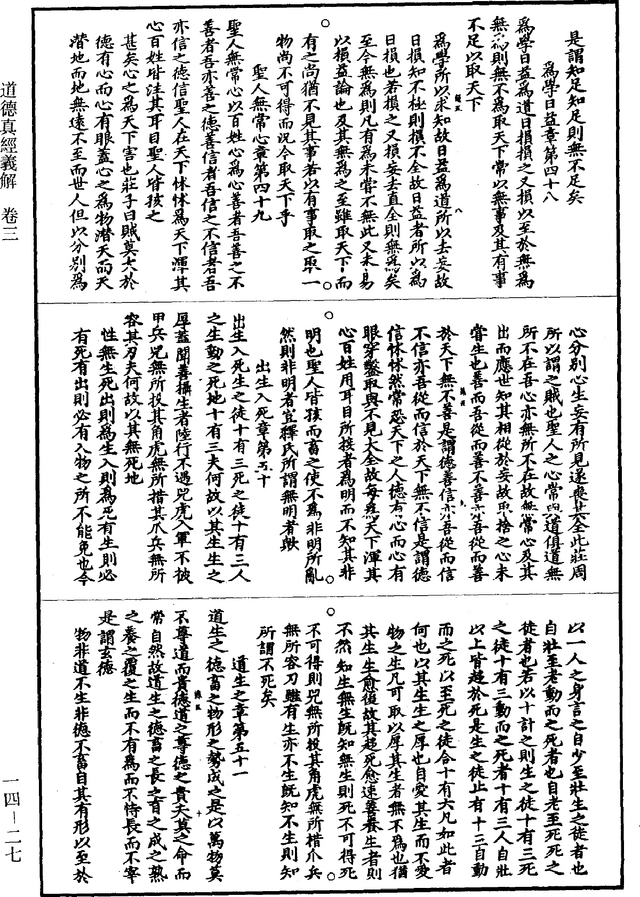 是謂知足知足則無不足矣
爲學日益章第四十八
爲學日益爲道日損損之又損以至於無爲
無爲則無不爲取天下常以無事及其有事
不足以取天下
爲學所以求知故日益爲道所以去妄故
日損知不極則損不全故日益者所以爲
日損也若損之又損妄去直全則無爲矣
至今無爲則凡有爲未嘗不無此又未易
以損益論也及其無爲之至雖取天下而
有之尚猶不見其事若以有事取之聚一
物尚不可得而況今取天下乎
聖人無常心章第四十九
聖人無常心以百姓心爲心善者吾善之不
善者吾亦善之德善信者吾信之不信者吾
亦信之德信聖人在天下怵怵爲天下渾其
心百姓皆注其耳目聖人皆孩之
甚矣心之爲天下害也莊子曰賊莫大於
德有心而心有眼蓋心之爲物潛天而天
潛地而地無遠不至而世人但以分別爲
心分別心生妄有所見遂喪其全此莊周
所以謂之賊也聖人之心常與道俱道無
所不在吾心亦無所不在故無常心及其
出而應世知其相從於妄故取捨之心未
嘗生也善而吾從而善不善亦吾從而善
於天下無不善是謂德善信亦吾從而信
不信亦吾從而信於天下無不信是謂德
信怵怵然常恐天下之人德有心而心有
眼穿鑿取與不見大全故每爲天下渾其
心百姓用耳目所接者爲明而不知其非
明也聖人皆孩而畜之使不爲非明所亂
然則非明者豈釋氏所謂無明者歟
出生入死章第五十
出生入死生之徒十有三死之徒十有三人
之生動之死地十有三夫何故以其生生之
厚蓋聞善攝生者陸行不遇兕虎入軍不被
甲兵兕無所投其角虎無所措其爪兵無所
容其刃夫何故以其無死地
性無生死出則爲生入則爲死有生則必
有死有出則必有入物之所不能免也今
以一人之身言之自少至壯生之徒者也
自壯至老動而之死者也自老至死死之
徒者也若以十計之則生之徒十有三死
之徒十有三動而之死者十有三人自壯
以上皆趨於死是生之徒止有十三自動
而之死以至死之徒合十有六凡如此者
何也以其生生之厚也自愛其生而不愛
物之生凡可取以厚其生者無不爲也猶
其生生愈復故其趨死愈速善養生者則
不然知生無生既知無生則死不可得死
不可得則兕無所投其角虎無所措爪兵
無所容刀雖有生亦不生既知不生則知
所謂不死矣
道生之章第五十一
道生之德畜之物形之勢成之是以萬物莫
不尊道而貴德道之尊德之貴夫莫之命而
常自然故道生之德畜之長之育之成之熟
之養之覆之生而不有爲而不恃長而不宰
是謂玄德
物非道不生非德不畜自其有形以至於
道德真經義解 卷三
一四-二七